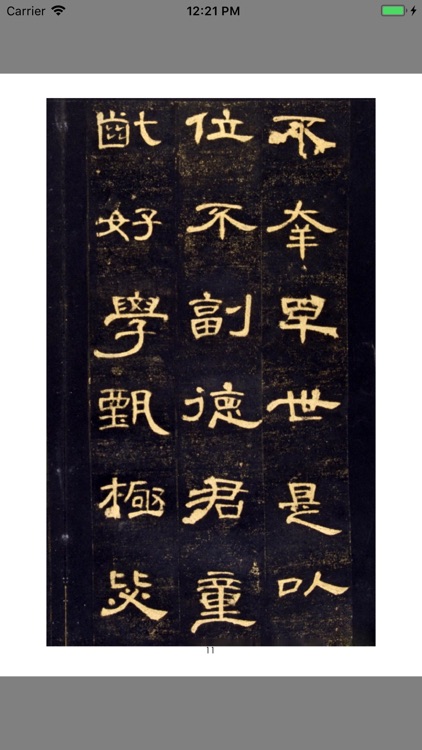 Carrier 12:21 PM
不幸早世是以
位不副德君童
齔好學甄極毖
11